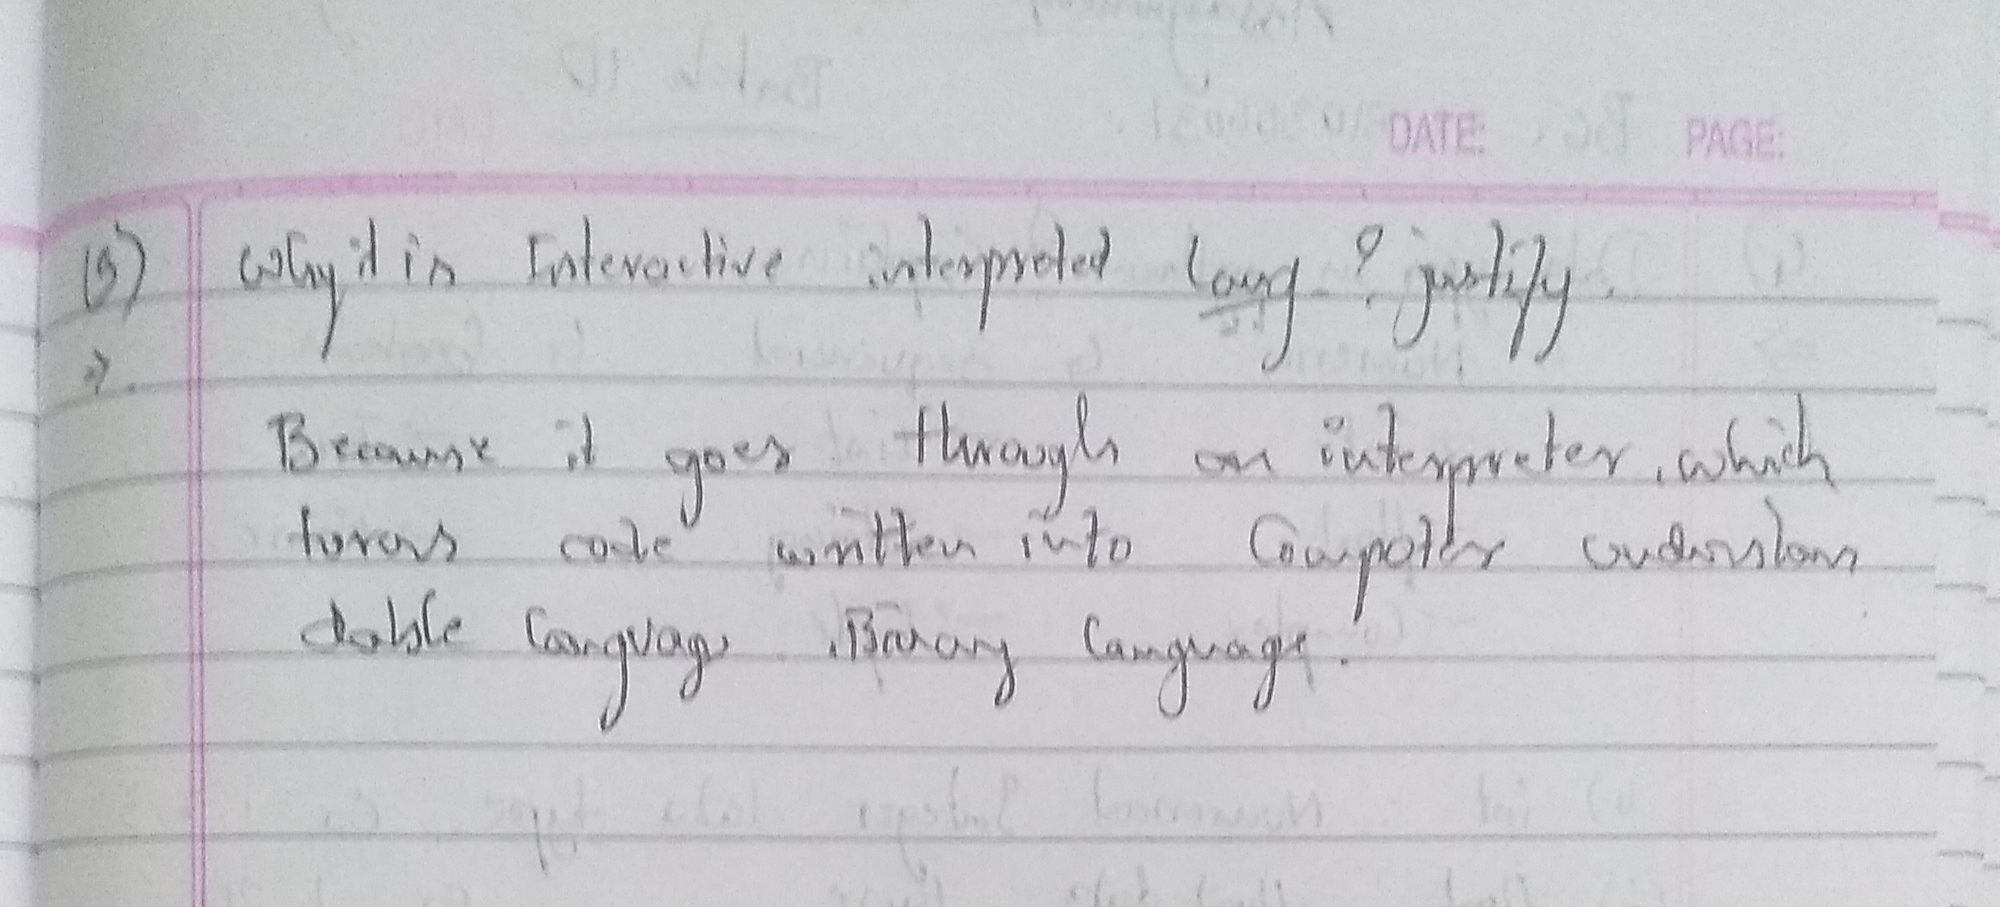 DATE: PAGE:
(3) Why it is Interactive interpreted lang ? justify.
⇒
Because it goes through an interpreter, which
turns code written into Computer understan
dable language. Binary language.